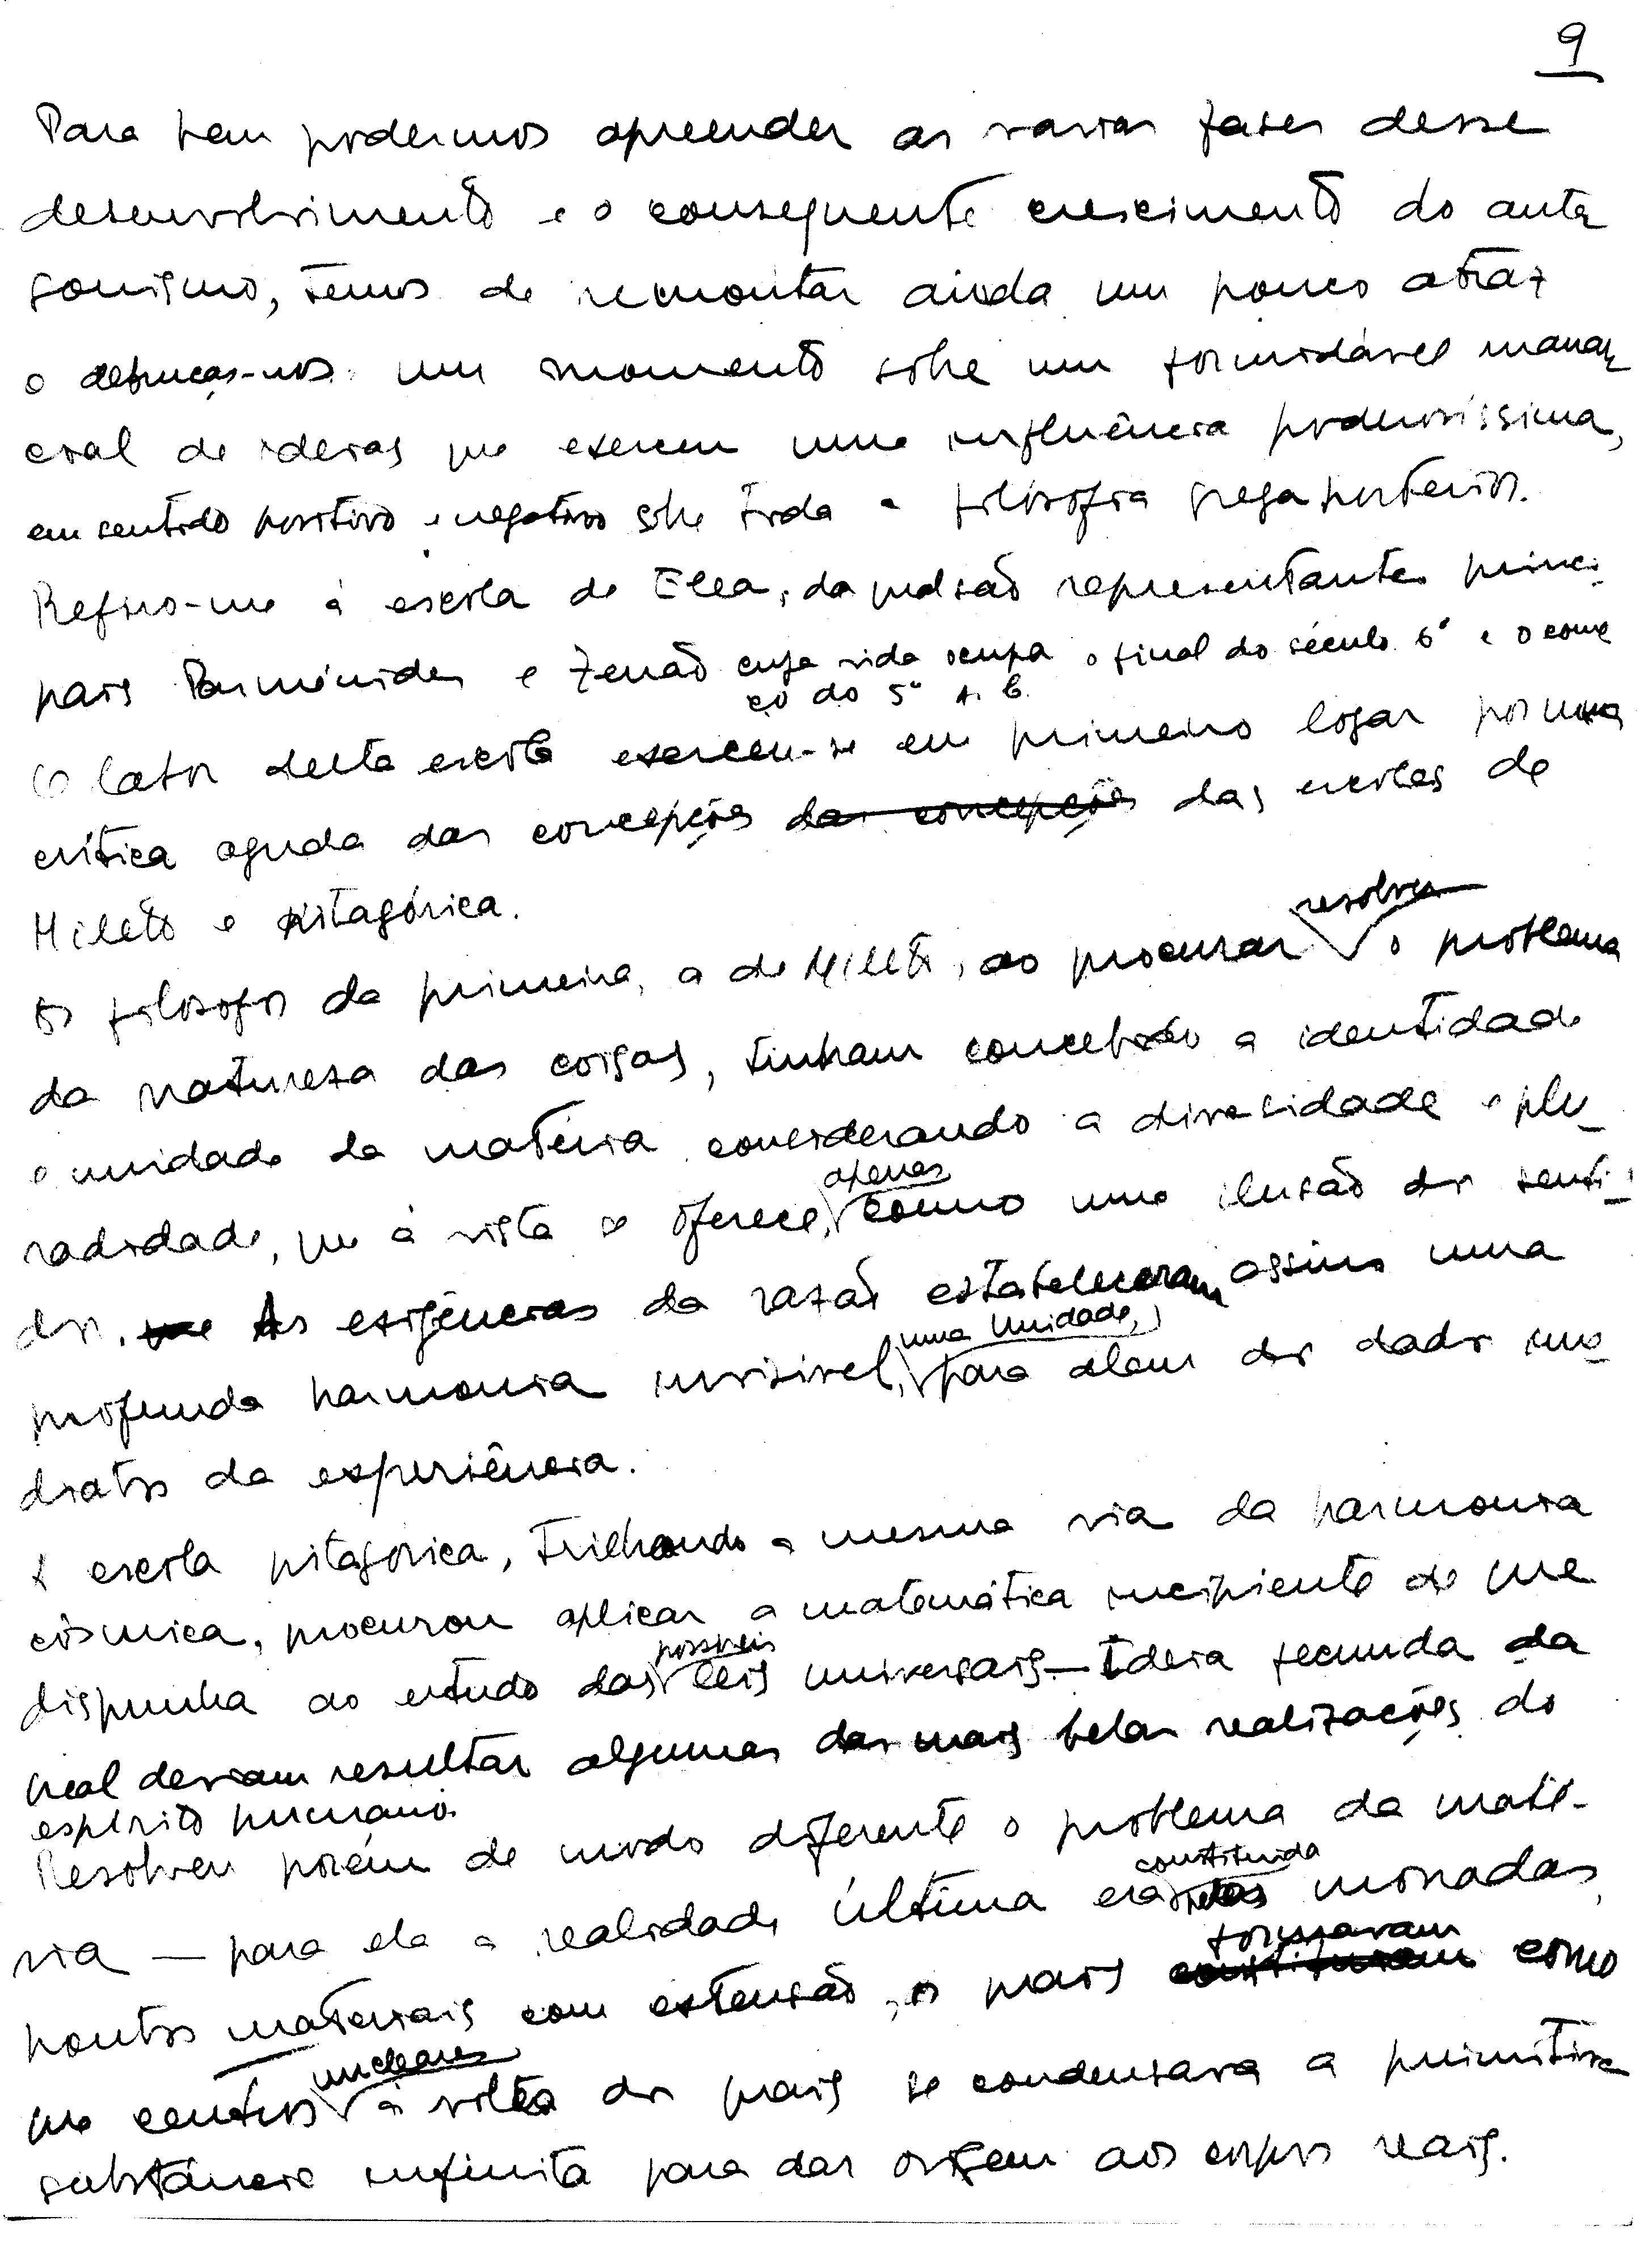 9
Para bem podermos apreender as varias fases desse
desenvolvimento e o consequente crescimento do anta
gonismo, temos de remontar ainda um pouco atraz
e debruçar-nos um momento sobre um formidável manan
cial de ideias que exerceu uma influência poderosíssima,
em sentido positivo e negativo sobre toda a filosofia grega posterior.
Refiro-me á escola de Elea, da qual são representantes princi-
pais Parménides e Zenão cuja vida ocupa o final do século 6º e o come
ço do 5º A. C.
O labor desta escola exerceu-se em primeiro logar por uma
crítica aguda das concepções das concepções das escolas de
Mileto e pitagórica.
Os filosofos da primeira, a de Mileto, ao procurar resolver o problema
da natureza das coisas, tinham concebido a identidade
e unidade da matéria considerando a diversidade e plu-
ralidade, que á vista se oferece, apenas como uma ilusão dos senti-
dos. que As exigências da razão estabeleceram assim uma
profunda harmonia invisivel, uma Unidade, para alem dos dados ime-
diatos da experiência.
A escola pitagorica, trilhando a mesma via da harmonia
cósmica, procurou aplicar a matemática incipiente de que
dispunha ao estudo das possiveis leis universais — Ideia fecunda da
qual deviam resultar algumas das mais belas realizações do
espírito humano.
Resolveu porém de modo diferente o problema da maté-
ria — para ela a realidade última era constituida pelas monadas,
pontos materiais com extensão, os quais constituiam formavam como
que centros nucleares á volta dos quais se condensava a primitiva
substância infinita para dar origem aos corpos reais.